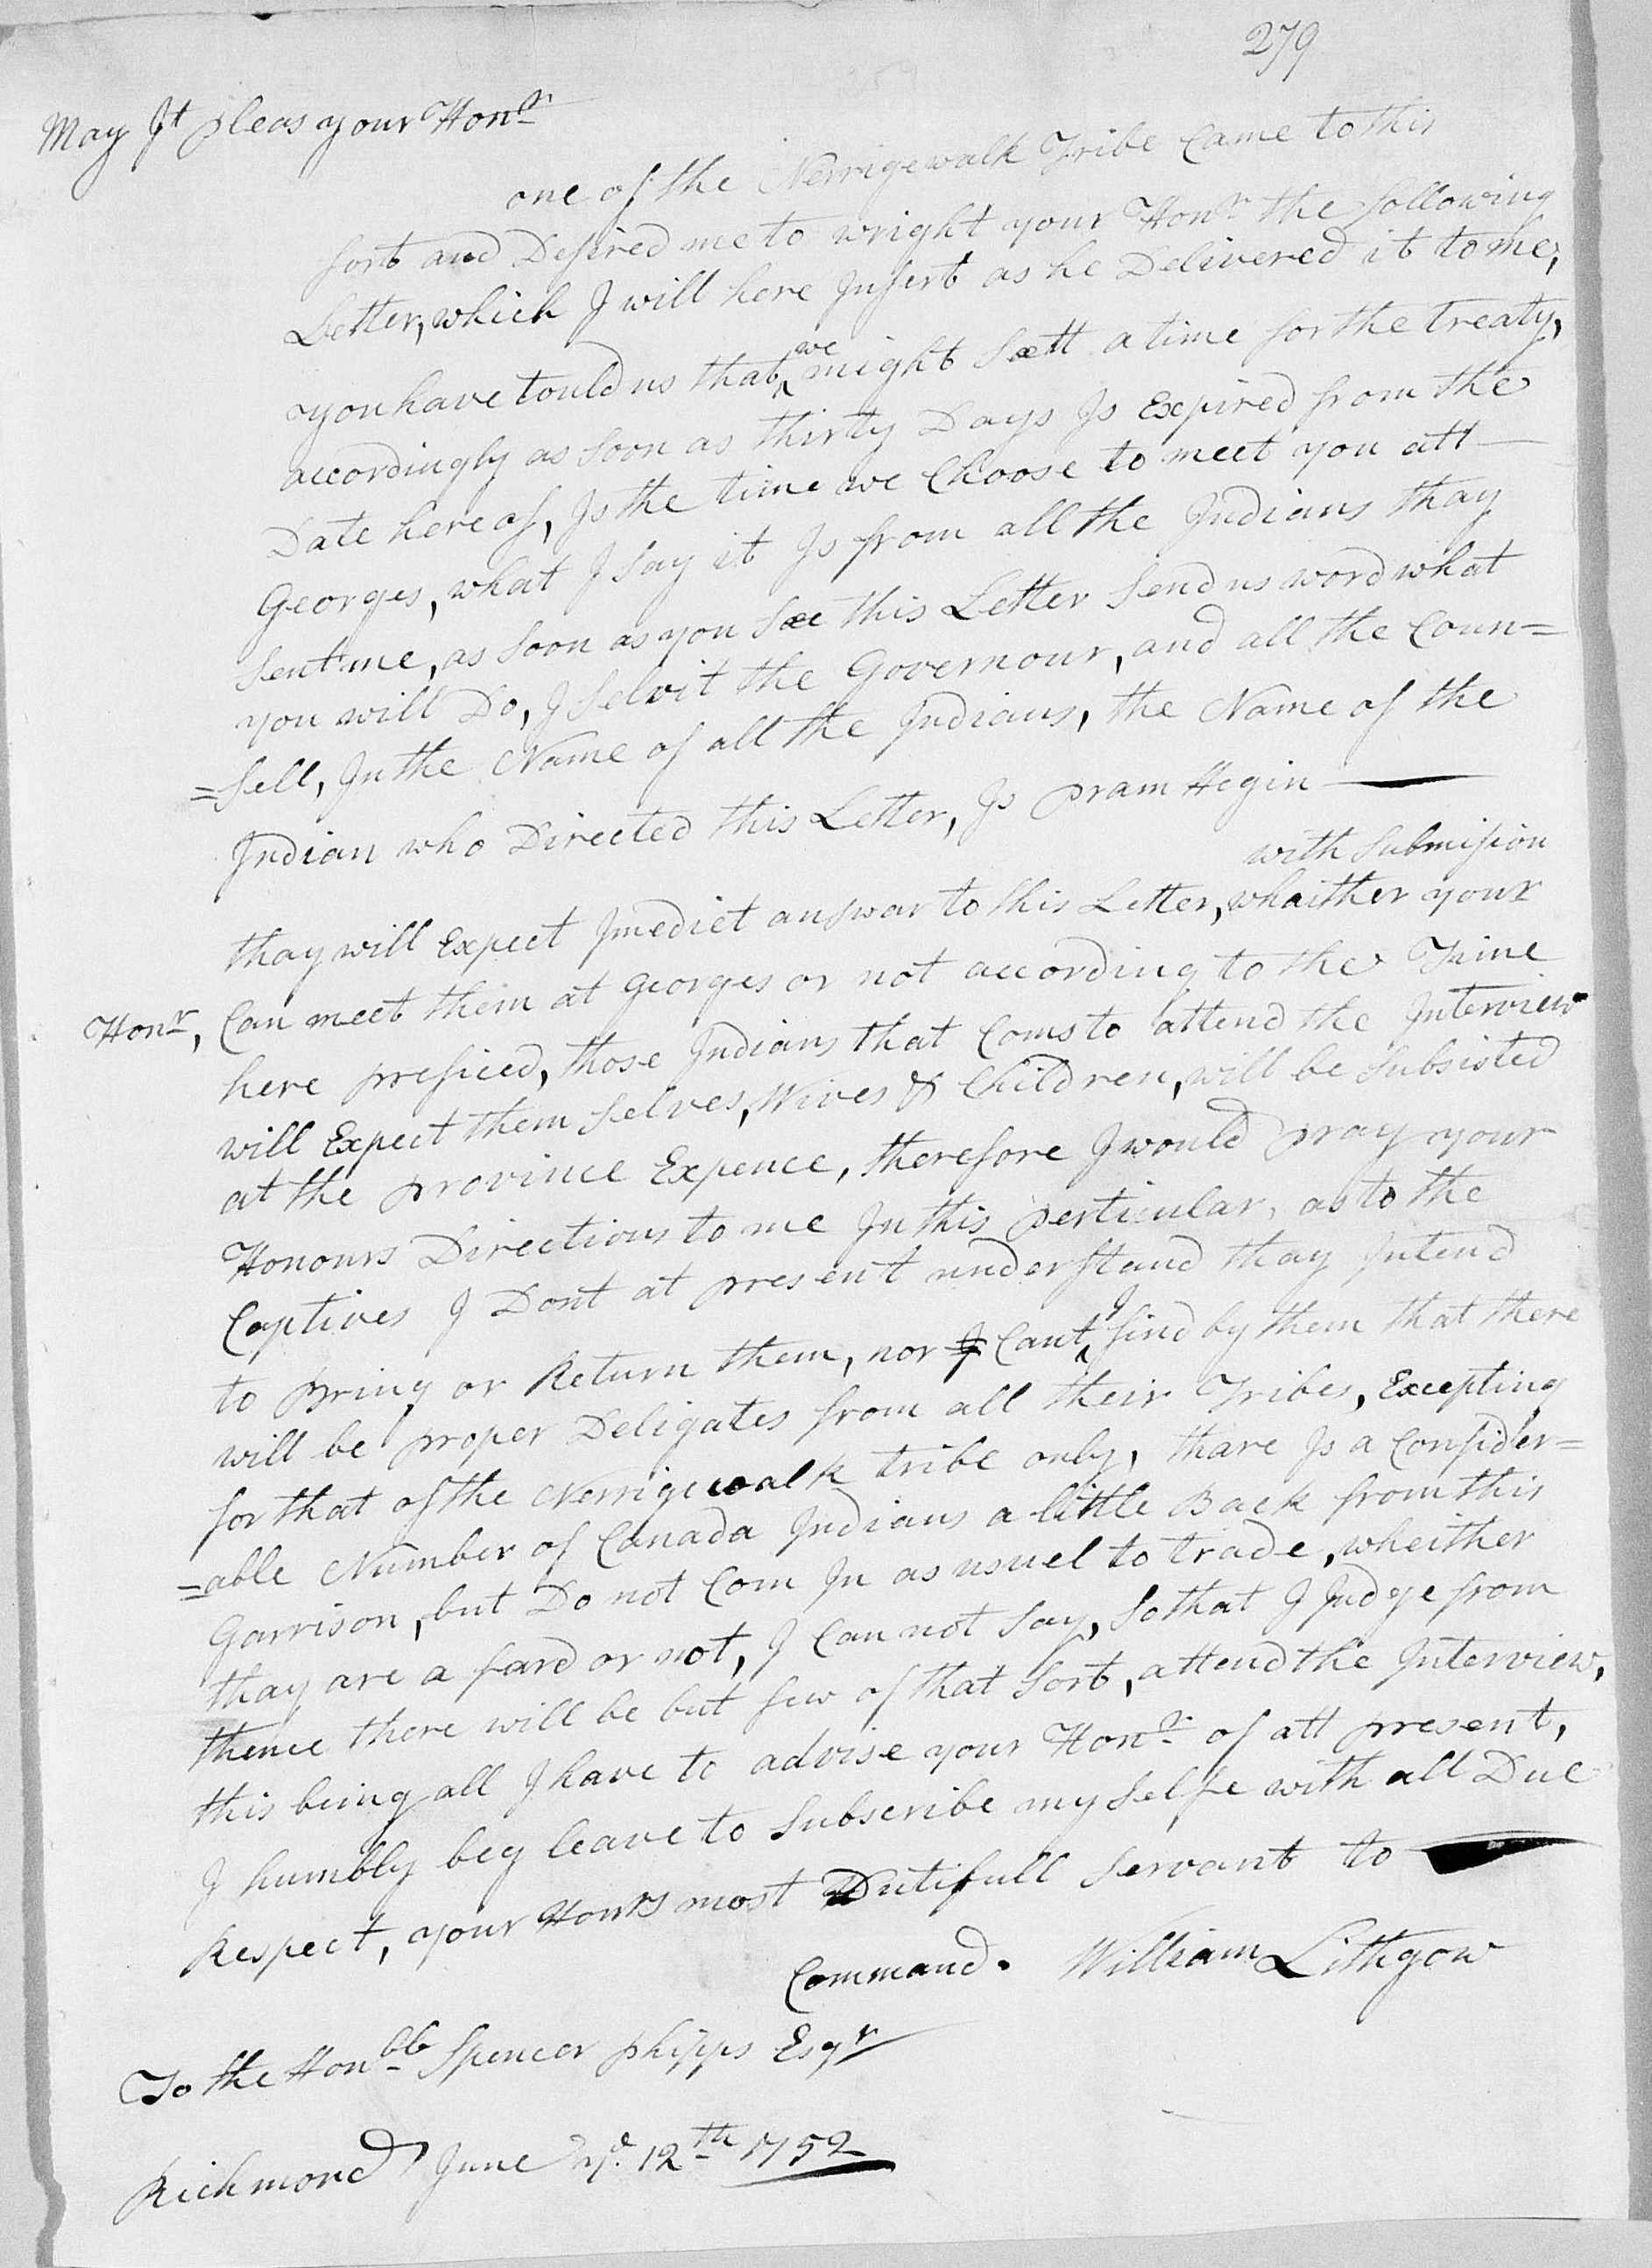 279
May It pleas your Honr
one of the Nerrigewalk Tribe Came to this
fort and Desired me to wright your Honr the following
Letter, which I will here Insert as he Delivered it to me,
you have tould us that we might Sett a time for the treaty,
accordingly as soon as thirty Days Is Expired from the
Date hereof, Is the time we Choose to meet you att
Georges, what I say it Is from all the Indians thay
Sent me, as soon as you See this Letter Send us word what
you will Do, I Selvit the Governour, and all the Coun=
=sell, In the Name of all the Indians, the Name of the
Indian who Directed this Letter, Is pram Hegin
with Submission
thay will Expect Imediet answar to this Letter, whaither your
Honr, Can meet them at Georges or not according to the Time
here prefixed, those Indians that Coms to attend the Interview
will Expect them selves, Wives & Children, will be Subsisted
at the province Expence, therefore I would pray your
Honours Directions to me In this perticular, as to the
Captives I Dont at present understand thay Intend
to Bring or Return them, nor I Cant I find by them that there
will be proper Deligates from all their Tribes, Excepting
for that of the Nerrigewalk tribe only, thare Is a Consider=
=able Number of Canada Indians a little Back from this
Garrison, but Do not Com In as usuel to trade, wheither
thay are a fard or not, I Can not say, So that I Judge from
thence there will be but few of that Sort, attend the Interview,
this being all I have to advise your Honr of att present,
I humbly beg leave to Subscribe my Selfe with all Due
Respect, your Honrs most Dutifull Servant to
Command. William Lithgow
To the Honble Spencer phipps Esqr
Richmond June ye. 12th 1752